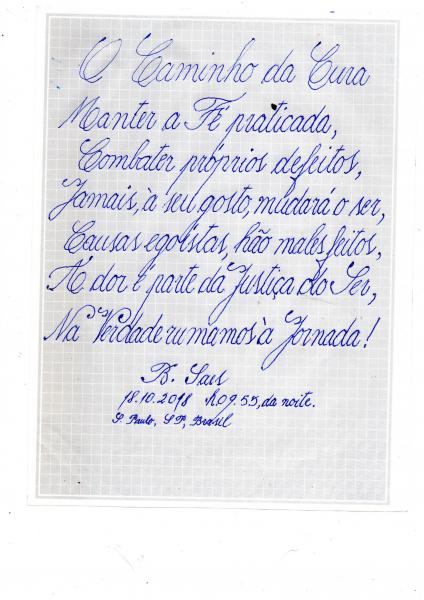 O Caminho da Cura
Manter a Fé praticada,
Combater próprios defeitos,
Jamais, à seu gosto, mudará o ser,
Causas egoístas, hão males feitos,
A dor é parte da Justiça do Ser,
Na Verdade rumamos à Jornada!
B. Saes
18.10.2018 h.09.55, da noite.
S. Paulo, SP, Brasil